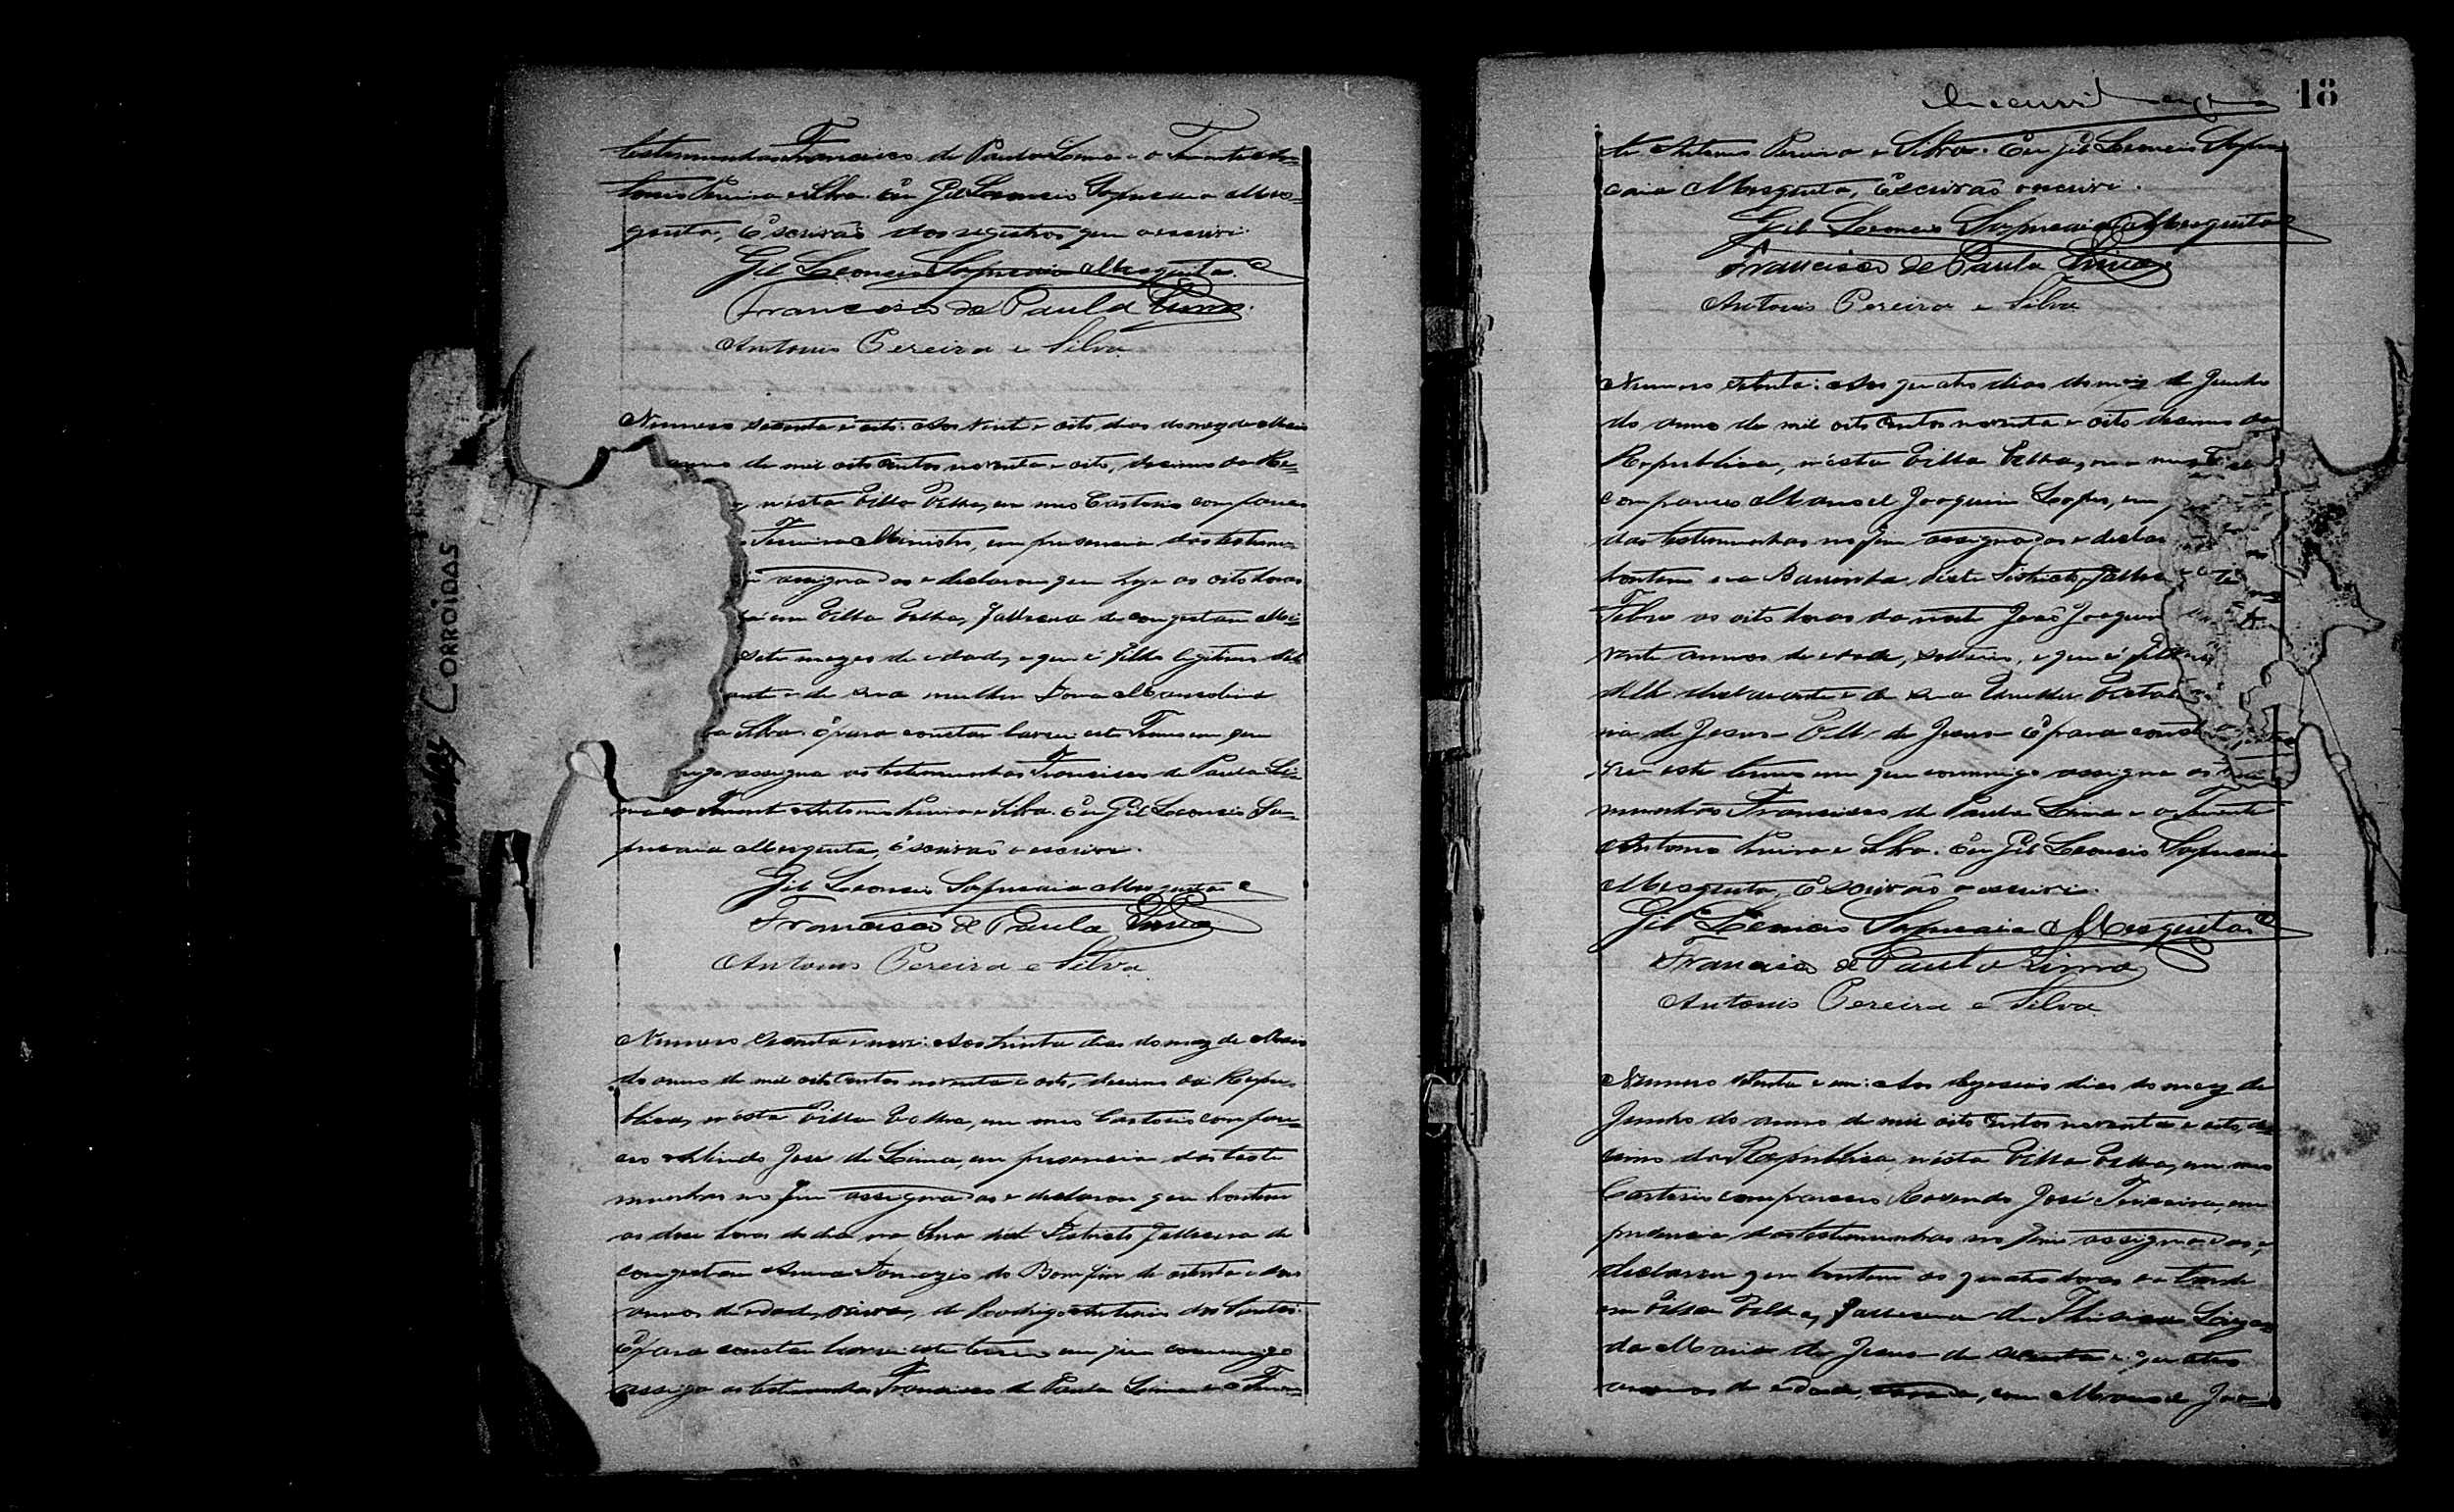 testemunhas Francisco de Paula Lima e o Tenente An=
tonio Pereira e Silva. Eu Gil Leoncio Sapucaia Mes=
quita, Escrivão dos registros que o escrivi.
Gil Leoncio Sapucaia Mesquita
Francisco de Paula Lima
Antonio Pereira e Silva
Numero secenta e oito: Aos vinte e oito dias do mez de Maio
anno de mil oito centos noventa e oito, decimo da Re=
nésta Villa Velha, em meo Cartorio compareceo
Ferreira Ministro, em presencia das testemu=
assignadas e declarou que hoje as oito horas
em Villa Velha, falleceua de congestam
sete mezes de edade, e que é filho legitimo delle
ante e de sua mulher Dona Marcolina
Silva. E para constar lavrei este Termo em que
migo assigna as testemunhas Francisco de Paula Li=
ma e o Tenente Antonio Pereira e Silva. Eu Gil Leoncio Sa=
pucaia Mesquita, Escrivão o escrivi.
Gil Leoncio Sapucaia Mesquita
Francisco de Paula Lima
Antonio Pereira e Silva
Numero Secenta e nove: Aos trinta dias do mez de Maio
do anno de mil oito centos noventa e oito, decimo da Repu=
blica, nésta Villa Velha, em meo Cartorio compare=
ceo Arlindo José de Lima, em presencia das teste
munhas no fim assignadas e declarou que hontem
as doze horas do dia na deste Districto falleceua de
congestam Anna do Bomfim de oitenta e dois
annos de edade, viuva, de Rodrigo Antonio dos Santos.
E para constar lavrei este termo em que commigo
assigna as testemunhas Francisco de Paula Lima e o Tenen=
18
te Antonio Pereira e Silva. Eu Gil Leoncio Sapu=
caia Mesquita, Escrivão o escrivi.
Gil Leoncio Sapucaia Mesquita
Francisco de Paula Lima
Antonio Pereira e Silva
Numero setenta: Aos quatro dias do mez de Junho
do anno de mil oito centos noventa e oito decimo da
Republica, nésta Villa Velha, em meo
compareceo Manoel Joaquim Lopes, em
das testemunhas no fim assignadas e declar
hontem na Barrinha, deste Districto, falleceo
Febre as oito horas da noite João Joaquim
vinte annos de edade, solteiro, e que é filho
delle declarante e de sua mulher
ria de Jesus de Jesus E para const
vrei este termo em que commigo assigna as teste
munhas Francisco de Paula Lima e o Tenente
Antonio Pereira e Silva. Eu Gil Leoncio Sapucaia
Mesquita, Escrivão o escrivi.
Gil Leoncio Sapucaia Mesquita
Francisco de Paula Lima
Antonio Pereira e Silva
Numero setenta e um: Aos dezeseis dias do mez de
Junho do anno de mil oito centos noventa e oito, de=
cimo da Republica, nésta Villa Velha, em meo
Cartorio compareceo Rozendo José Teixeira, em
presencia das testemunhas no fim assignadas, e
declarou que hontem as quatro horas da tarde
em Villa Velha, falleceua de Thisica
da Maria de Jesus de secenta e quatro
annos de edade, casada, com Manoel Joa=
CORROIDAS